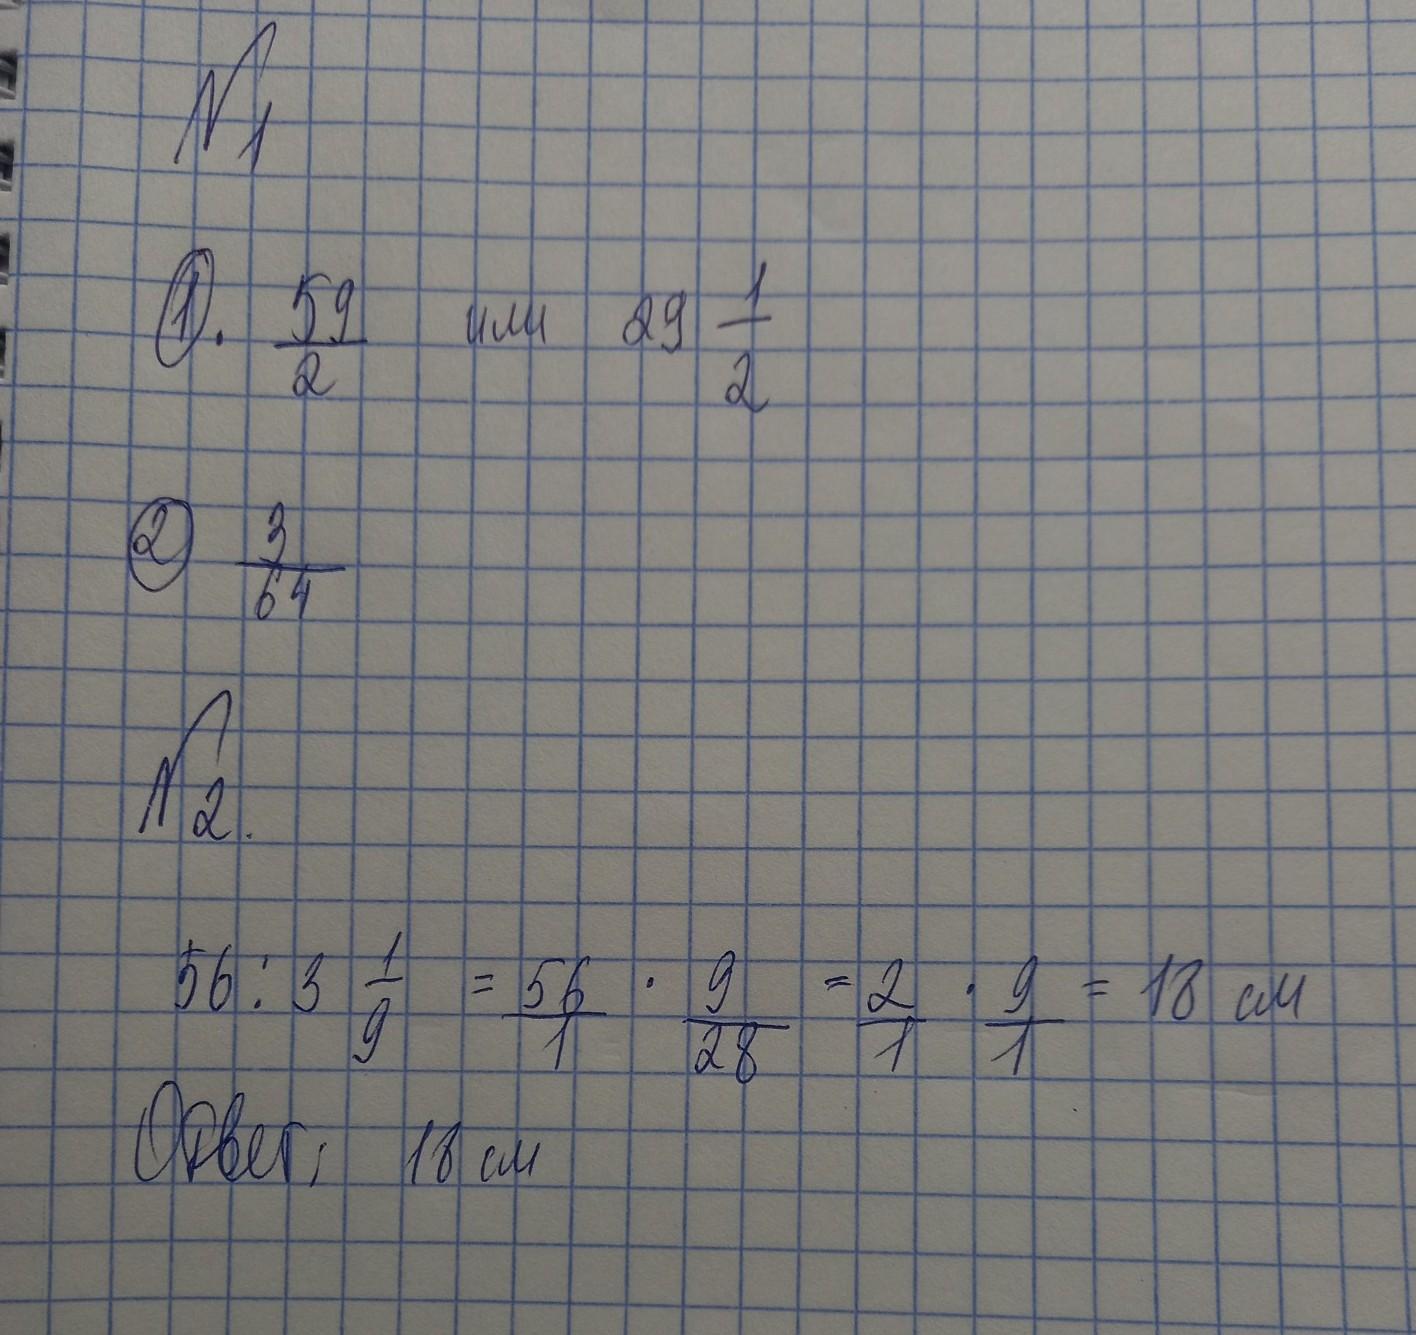 N1
1. 59/2 или 29 1/2
2 3/64
N2.
56 : 3 1/9 = 56/1 · 9/28 = 2/1 · 9/1 = 18 см
Ответ: 18 см